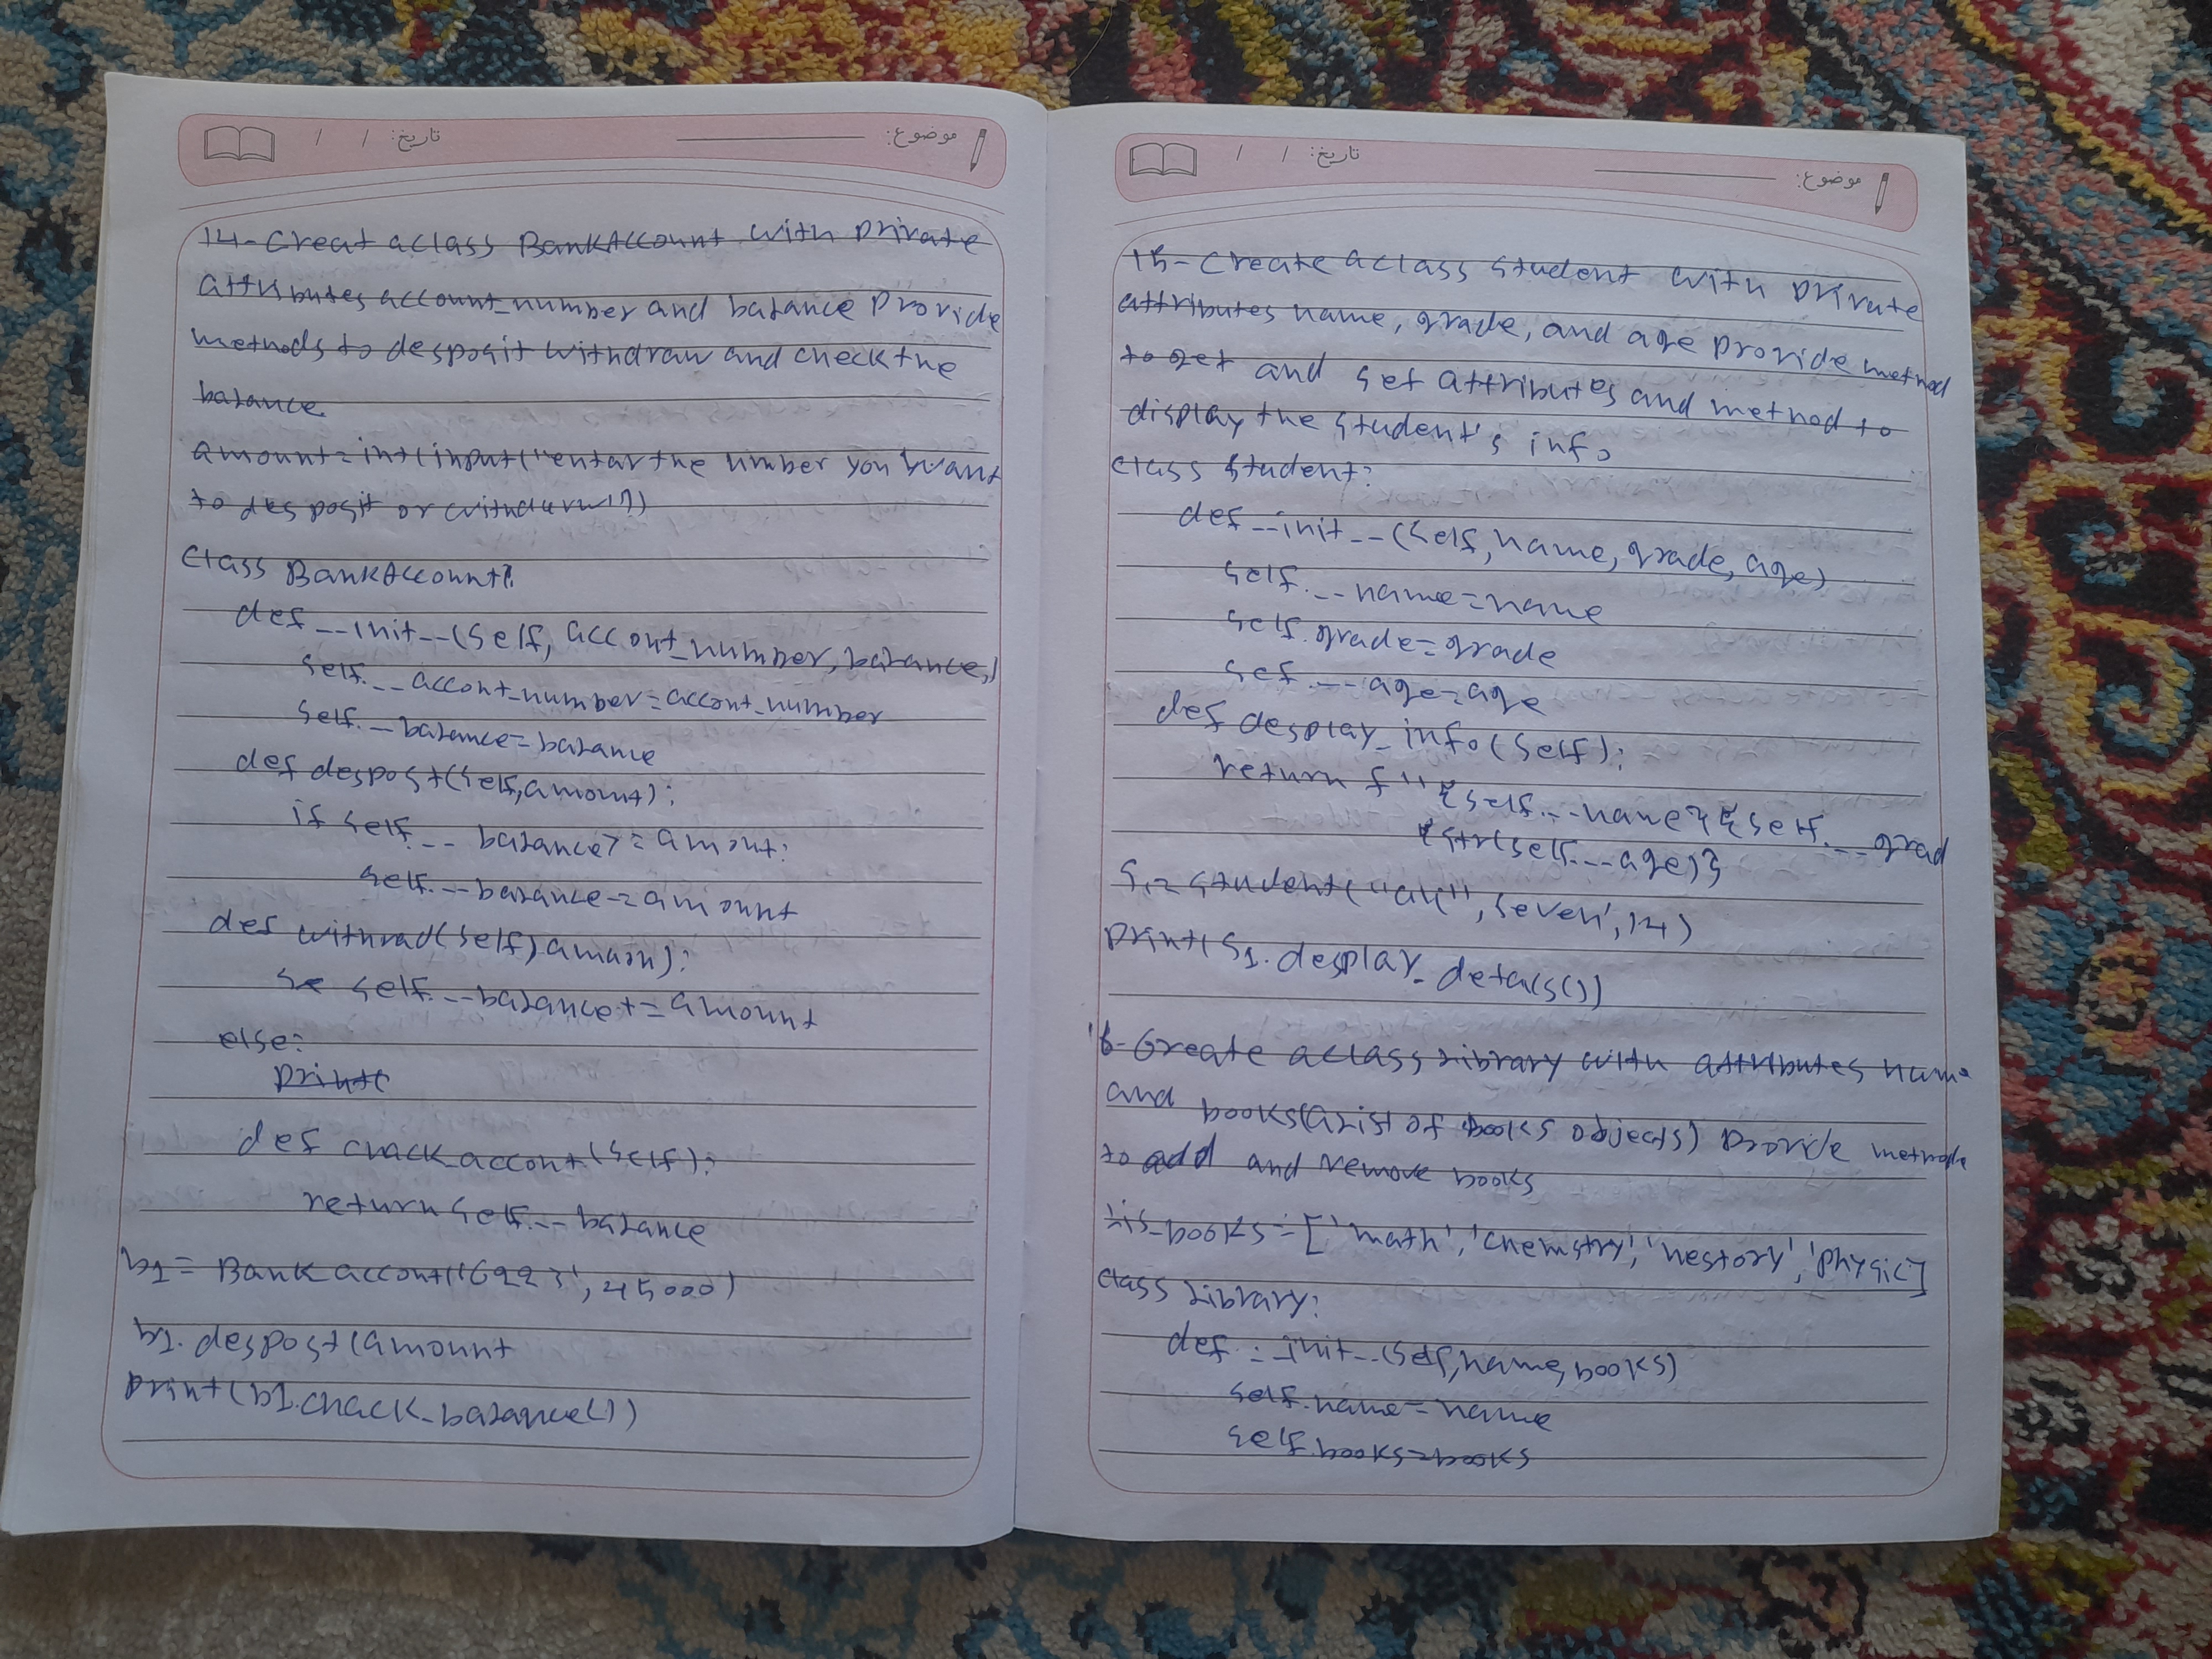 تاریخ: / / موضوع:
14-Creat a class BankAccount with private
attributes account_number and balance provide
methods to despoit withdraw and check the
balance.
amount = int(input('entar the number you want
to despoit or withdraw'))
class BankAccount:
def __init__(self, accont_number, balance)
self.__accont_number=accont_number
self.__balance=balance
def despost(self,amount):
if self.__balance>=amont:
self.__balance-=amiount
def withrad(self,amuon):
se self.__balance+=amount
else:
print(
def chack accont(self):
return self.__balance
b1= Bank account('6223', 45000)
b1.despost(amount
print(b1.chack_balance())
تاریخ: / / موضوع:
15-Create a class student with private
attributes name, grade, and age provide method
to get and set attributes and method to
display the student's info
class student:
def __init__(self,name,grade,age)
self.__name=name
self.grade=grade
sef.__age=age
def desplay_info(self):
return f"{self.__name}{self.__grad
{str(self.__age)}
S1=student('ali','seven',14)
print(S1.desplay_details())
16-Create a class library with attributes name
and books(a list of books objects) provide methods
to add and remove books
lis_books=['math','chemstry','hestory','physic']
class library:
def __init__(self,name,books)
self.name=name
self.books=books